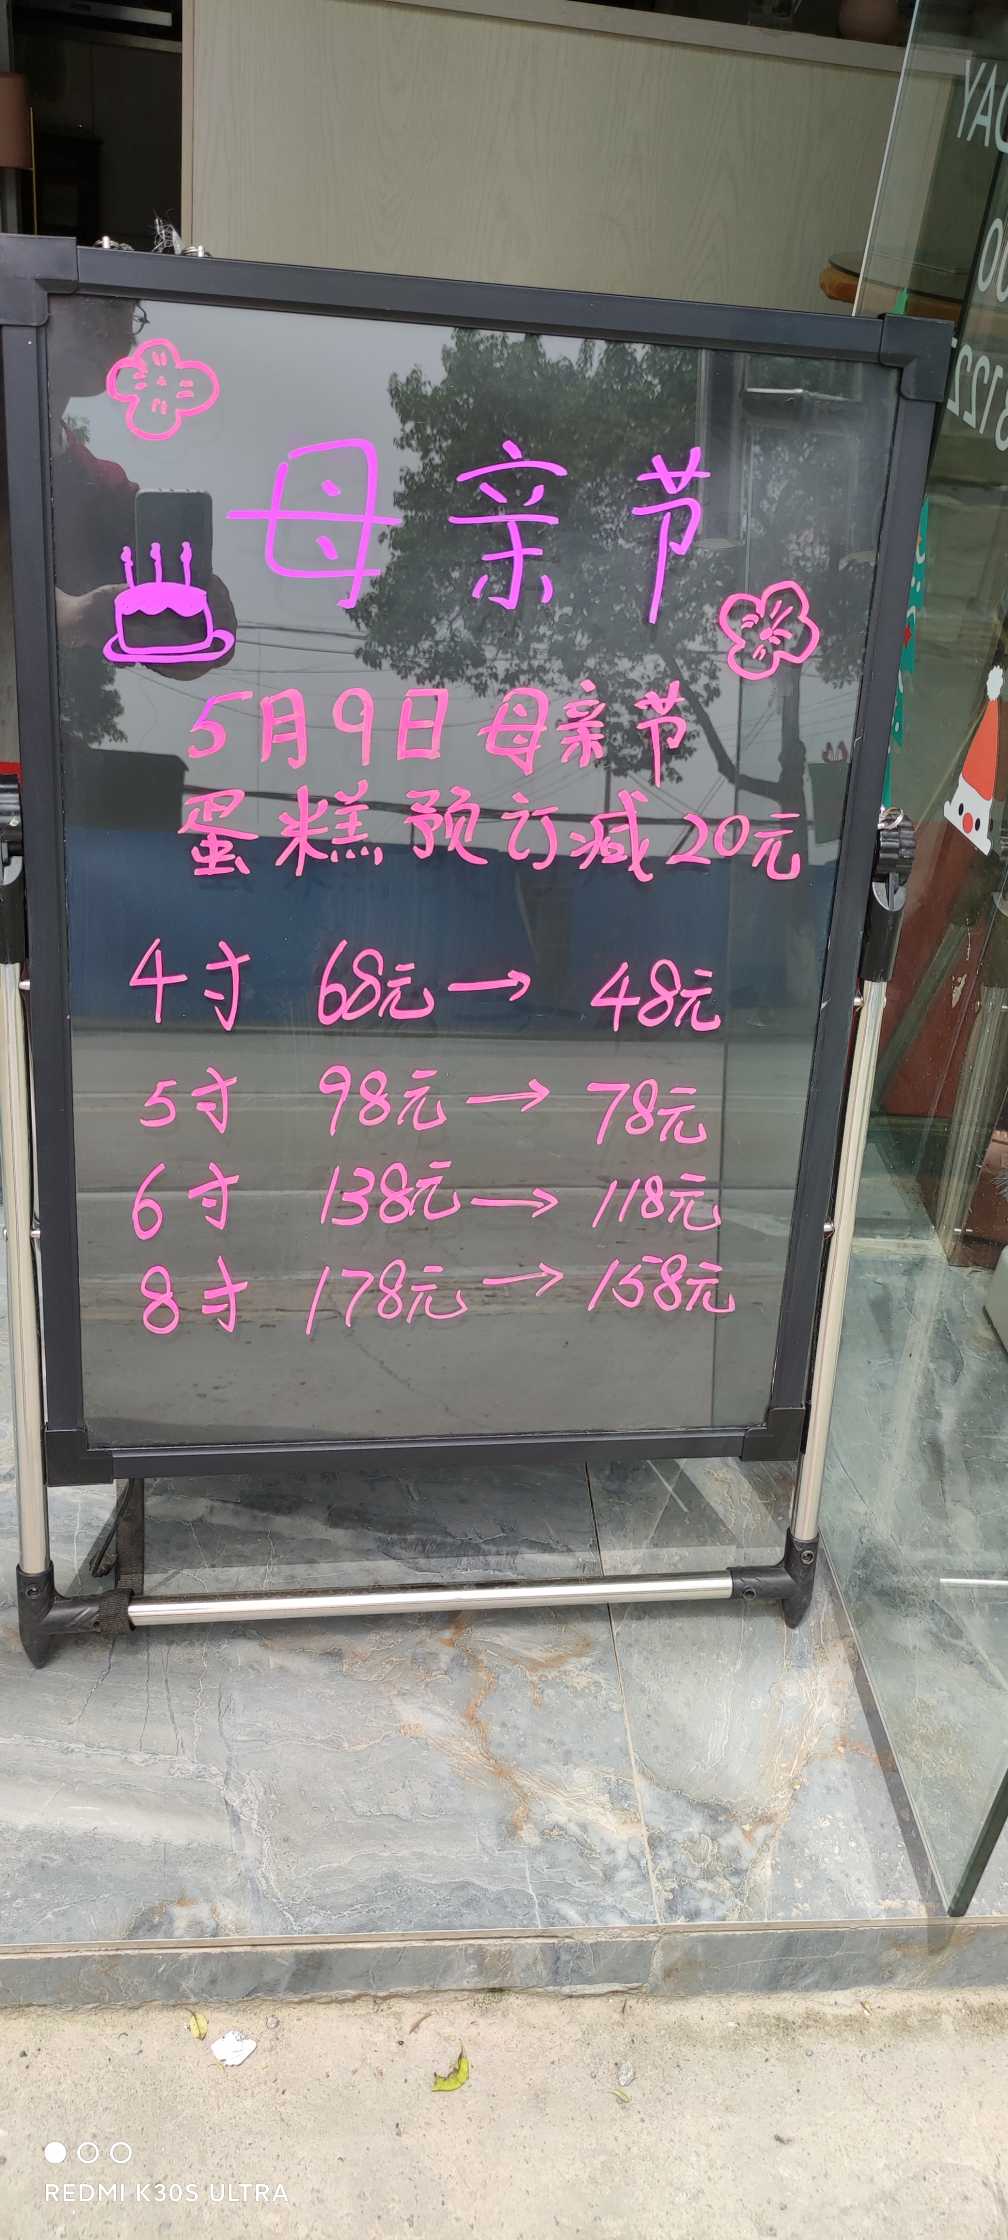 母亲节
5月9日母亲节
蛋糕预订减20元
4寸 68元→48元
5寸 98元→78元
6寸 138元→118元
8寸 178元→158元
REDMI K30S ULTRA